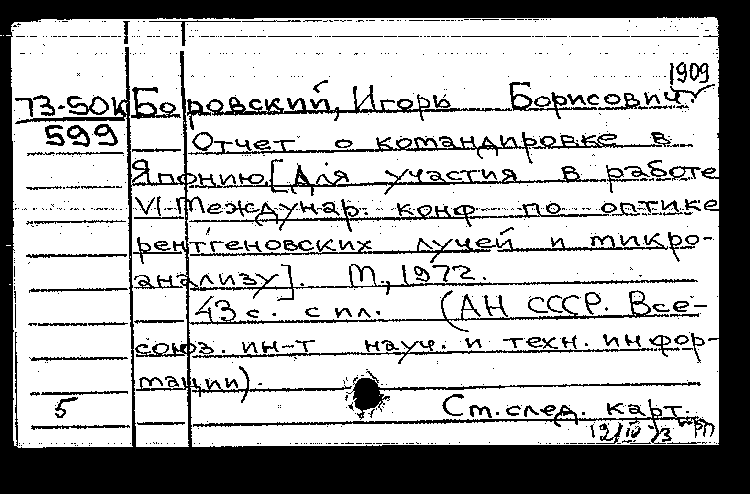 1909
73-50к Боровский, Игорь Борисович.
599 Отчет о командировке в
Японию [Для участия в работе
VI Междунар. конф по оптике
рентгеновских лучей и микро-
анализу]. М, 1972.
43 с. с ил. (АН СССР. Все-
союз. ин-т науч. и техн. инфор-
мации).
5 Ст. след. карт.